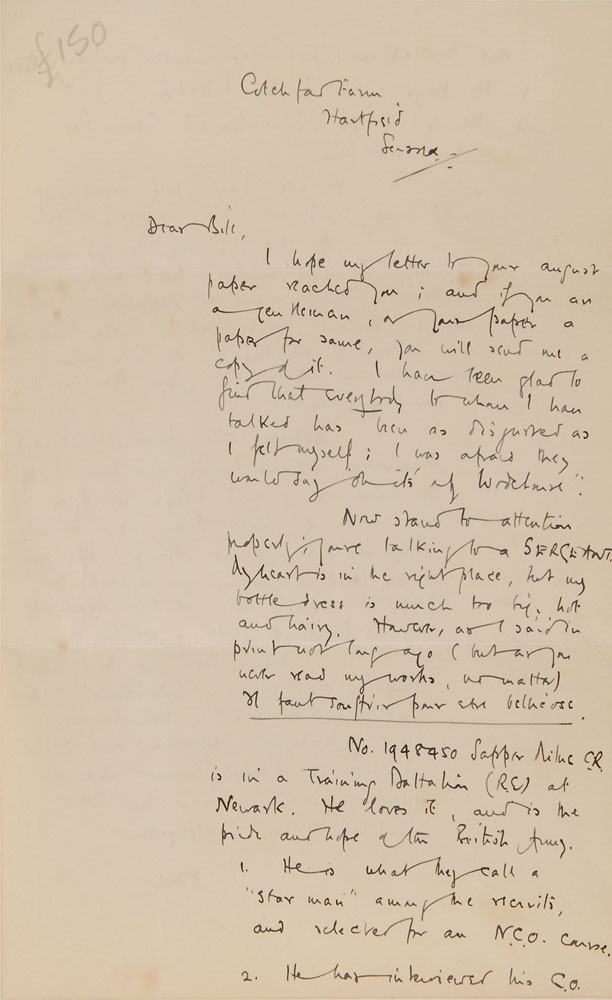 £150
Cotchford Farm
Hartfield
Sussex.
Dear Bill,
I hope my letter to your august
paper reached you ; and if you are
a gentleman, or your paper a
paper for same, you will send me a
copy of it. I have been glad to
find that everybody to whom I have
talked has been as disgusted as
I felt myself ; I was afraid they
would say "oh it's only Wodehouse".
Now stand to attention
properly ; you're talking to a SERGEANT.
My heart is in the right place, but my
battledress is much too big, hot
and hairy. However, as I said in
print not long ago (but as you
never read my works, no matter)
Il faut souffrir pour être bellicose.
No. 1948450 Sapper Milne C.R.
is in a Training Battalion (R.E.) at
Newark. He loves it, and is the
pride and hope of the British Army.
1. He is what they call a
"star man" among the recruits,
and selected for an N.C.O. course.
2. He has interviewed his C.O.